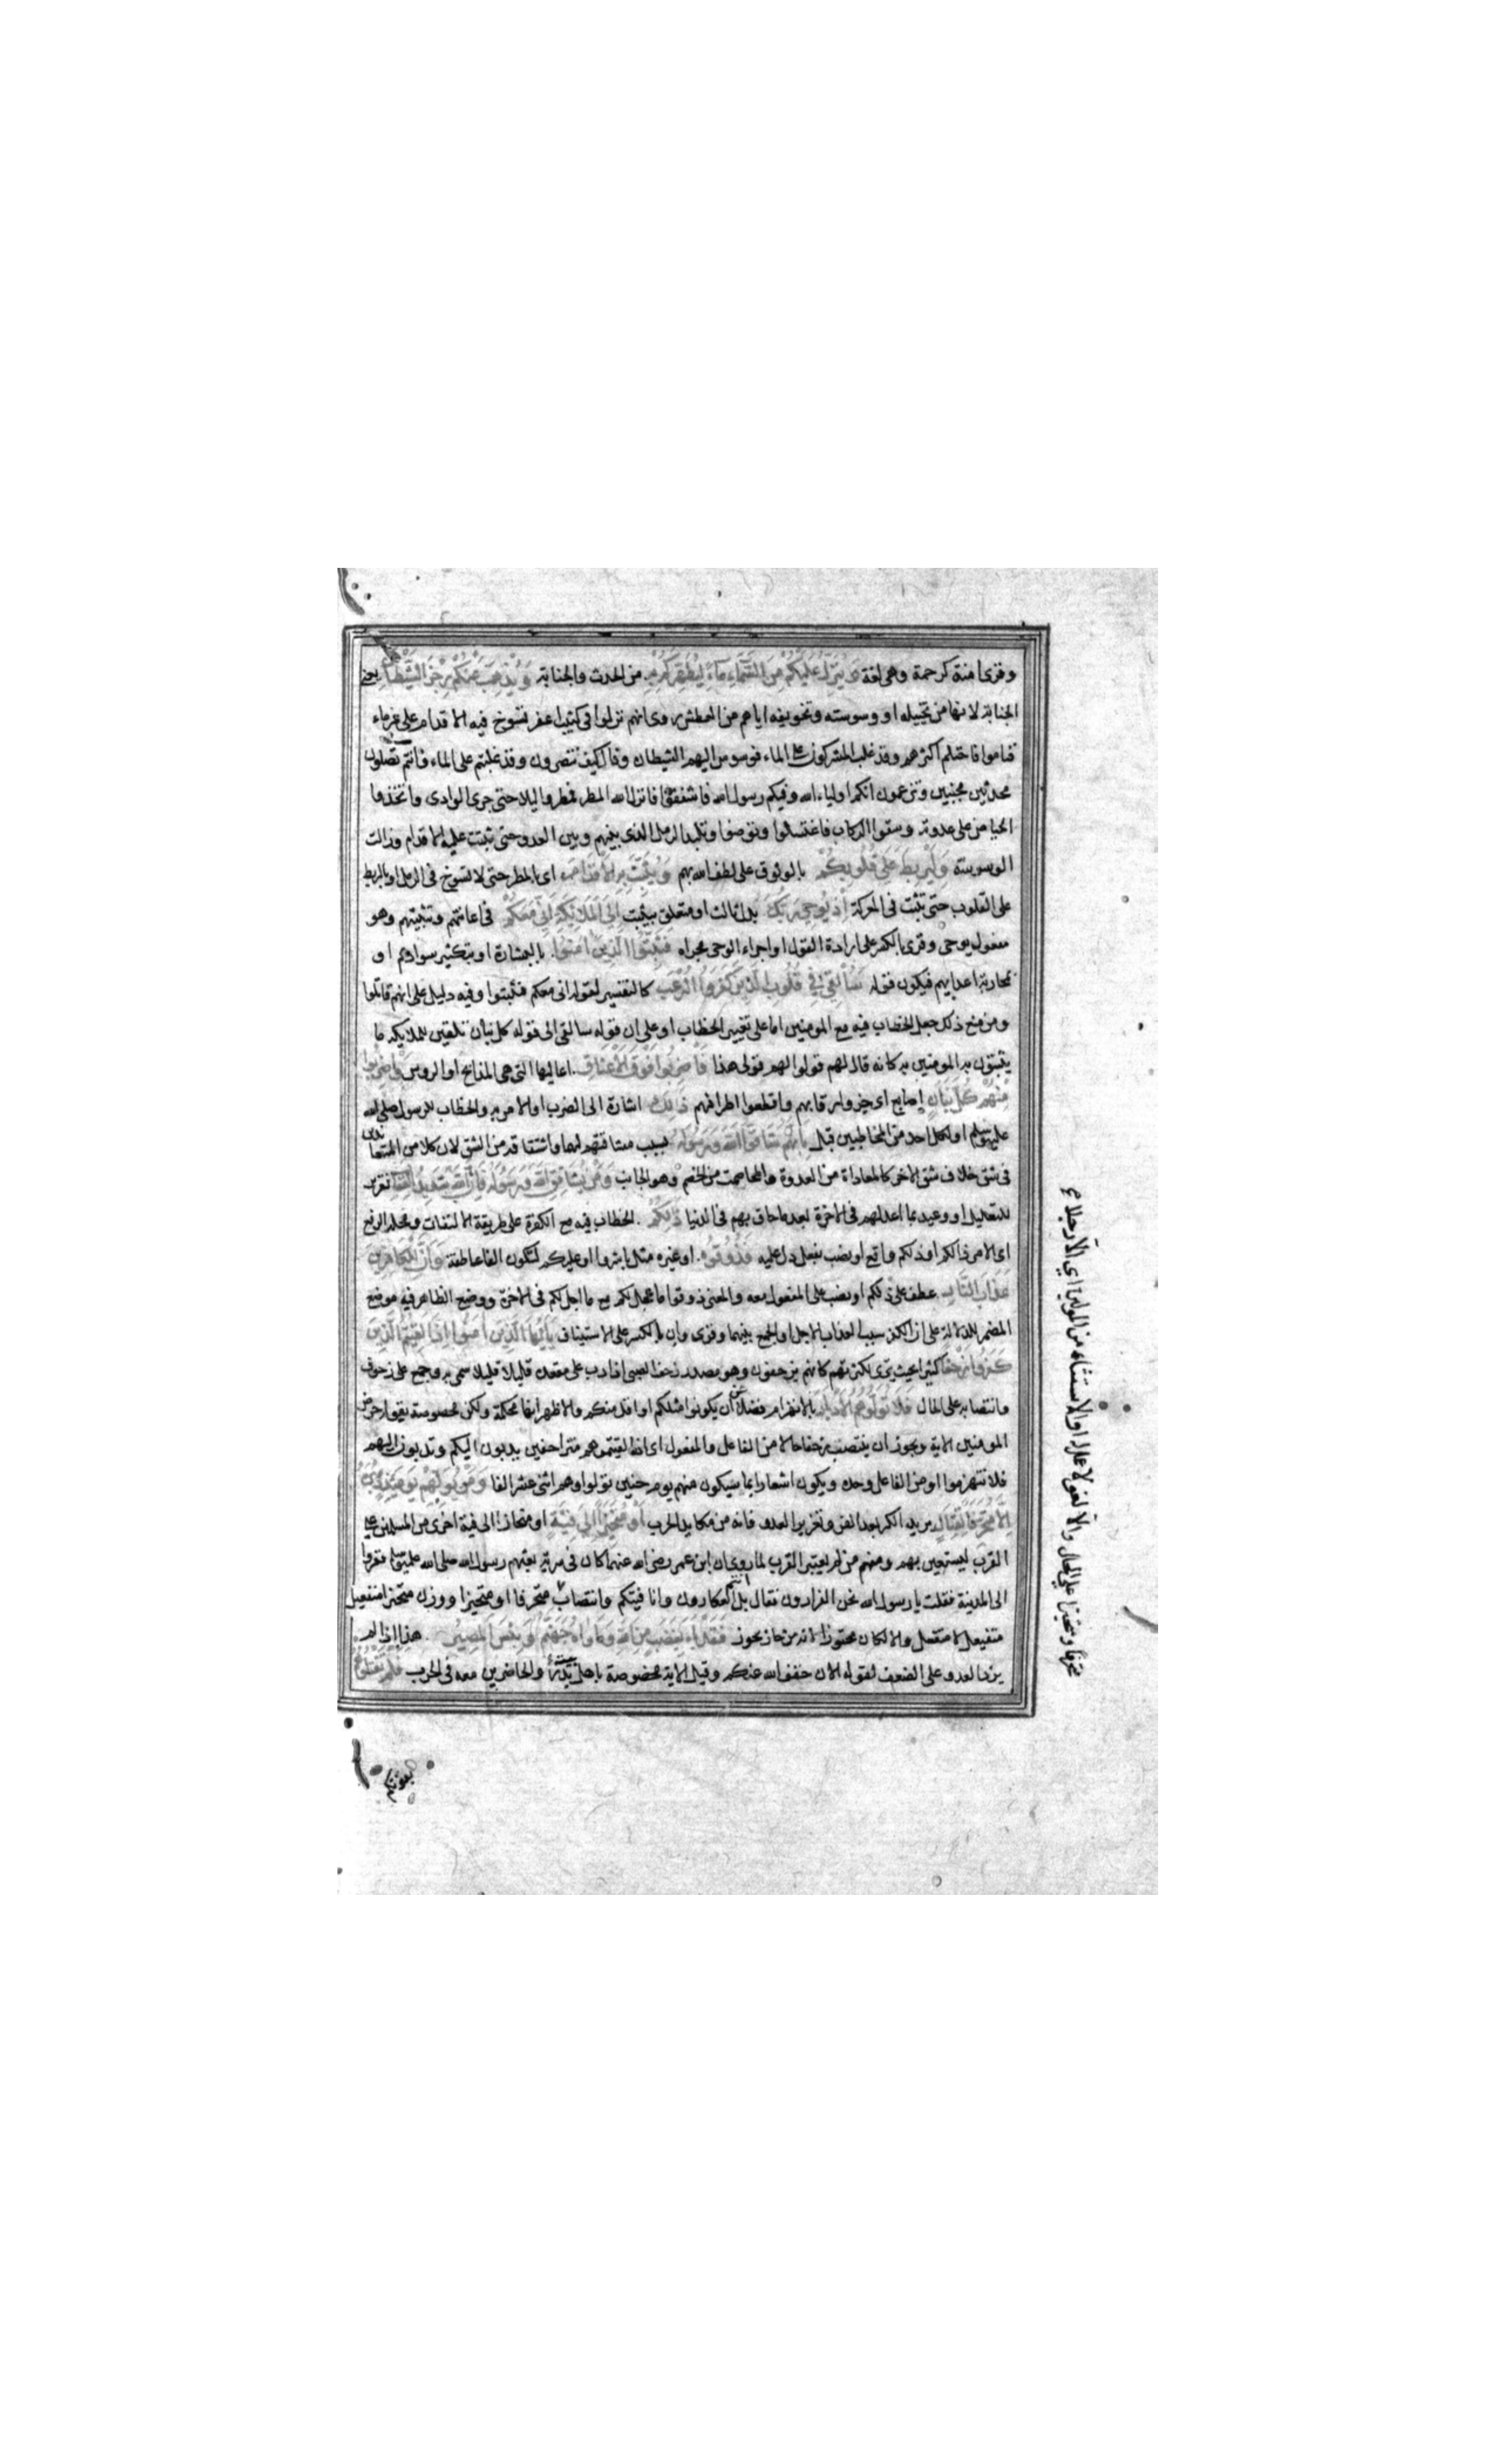 وقرئ امنة كرحمة وهي لغة وَيُنَزِّلُ عَلَيْكُمْ مِنَ السَّمَاءِ مَاءً لِيُطَهِّرَكُمْ بِهِ من الحدث والجنابة وَيُذْهِبَ عَنْكُمْ رِجْزَ الشَّيْطَانِ يعني
الجنابة لانها من تخييله او وسوسته وتخويفه اياهم من العطش روى انهم نزلوا في كثيب اعفر تسوخ فيه الاقدام على غير ماء
فناموا فاحتلم اكثرهم وقد غلب المشركون على الماء فوسوس اليهم الشيطان وقال كيف تنصرون وقد غلبتم على الماء وانتم تصلون
محدثين مجنبين وتزعمون انكم اولياء الله وفيكم رسول الله فاشفقوا فانزل الله المطر فمطروا ليلا حتى جرى الوادي واتخذوا
الحياض على عدوته وسقوا الركاب فاغتسلوا وتوضوا وتلبد الرمل الذي بينهم وبين العدو حتى تثبت عليه الاقدام وزالت
الوسوسة وَلِيَرْبِطَ عَلَى قُلُوبِكُمْ بالوثوق على لطف الله بهم وَيُثَبِّتَ بِهِ الْأَقْدَامَ اي بالمطر حتى لا تسوخ في الرمل او بالربط
على القلوب حتى تثبت في المعركة إِذْ يُوحِي رَبُّكَ بدل ثالث او متعلق بيثبت إِلَى الْمَلَائِكَةِ أَنِّي مَعَكُمْ في اعانتهم وتثبيتهم وهو
مفعول يوحي وقرئ بالكسر على ارادة القول او اجراء الوحي مجراه فَثَبِّتُوا الَّذِينَ آمَنُوا بالبشارة او بتكثير سوادهم او
بمحاربة اعدايهم فيكون قوله سَأُلْقِي فِي قُلُوبِ الَّذِينَ كَفَرُوا الرُّعْبَ كالتفسير لقوله اني معكم فثبتوا وفيه دليل على انهم قاتلوا
ومن منع ذلك جعل الخطاب فيه مع المومنين اما على تغيير الخطاب او على ان قوله سالقي الى قوله كل بنان تلقين للملايكه ما
يثبتون به المومنين به كانه قال لهم قولوا لهم قولي هذا فَاضْرِبُوا فَوْقَ الْأَعْنَاقِ اعاليها التي هي المذابح او الروس وَاضْرِبُوا
مِنْهُمْ كُلَّ بَنَانٍ اصابع اي جزوا رقابهم واقطعوا اطرافهم ذَلِكَ اشارة الى الضرب او الامر به والخطاب للرسول صلى الله
عليه وسلم او لكل احد من المخاطبين قبل بِأَنَّهُمْ شَاقُّوا اللَّهَ وَرَسُولَهُ بسبب مشاقتهم لهما واشتقاقه من الشق لان كلا من المتعاديين
في شق خلاف شق الاخر كالمعاداة من العدوة والمخاصمة من الخصم وهو الجانب وَمَنْ يُشَاقِقِ اللَّهَ وَرَسُولَهُ فَإِنَّ اللَّهَ شَدِيدُ الْعِقَابِ تقرير
للتعليل او وعيد بما اعد لهم في الاخرة بعد ما حاق بهم في الدنيا ذَلِكُمْ الخطاب فيه مع الكفرة على طريقة الالتفات ومحله الرفع
اي الامر ذالكم او ذلكم واقع او نصب بفعل دل عليه فَذُوقُوهُ او غيره مثل باشروا او عليكم لتكون الفا عاطفة وَأَنَّ لِلْكَافِرِينَ
عَذَابَ النَّارِ عطف على ذلكم او نصب على المفعول معه والمعنى ذوقوا ما عجل لكم مع ما اجل لكم في الاخرة ووضع الظاهر فيه موضع
المضمر للدلالة على ان الكفر سبب العذاب الاجل او الجمع بينهما وقرئ وان بالكسر على الاستيناف يَا أَيُّهَا الَّذِينَ آمَنُوا إِذَا لَقِيتُمُ الَّذِينَ
كَفَرُوا زَحْفًا كثيرا بحيث يرى لكثرتهم كانهم يزحفون وهو مصدر زحف الصبي اذا دب على مقعده قليلا قليلا سمي به وجمع على زحوف
وانتصابه على الحال فَلَا تُوَلُّوهُمُ الْأَدْبَارَ بالانهزام فضلا عن ان يكونوا مثلكم او اقل منكم والاظهر انها محكمة ولكن مخصوصة بقوله حرض
المومنين الاية ويجوز ان ينتصب زحفا حالا من الفاعل والمفعول اي اذا لقيتموهم متزاحفين يدبون اليكم وتدبون اليهم
فلا تنهزموا او من الفاعل وحده ويكون اشعارا بما سيكون منهم يوم حنين تولوا وهم اثنى عشر الفا وَمَنْ يُوَلِّهِمْ يَوْمَئِذٍ دُبُرَهُ
إِلَّا مُتَحَرِّفًا لِقِتَالٍ يريد الكر بعد الفر وتغرير العدو فانه من مكايد الحرب أَوْ مُتَحَيِّزًا إِلَى فِئَةٍ او منحازا الى فية اخرى من المسلمين على
القرب ليستعين بهم ومنهم من لم يعتبر القرب لما روي ان ابن عمر رضي الله عنهما كان في سرية بعثهم رسول الله صلى الله عليه وسلم ففروا
الى المدينة فقلت يا رسول الله نحن الفرارون فقال بل انتم العكارون وانا فيتكم وانتصاب متحرفا او متحيزا ووزن متحيز متفيعل
متفيعل لا متفعل والا لكان متحوزا لانه من حاز يحوز فَقَدْ بَاءَ بِغَضَبٍ مِنَ اللَّهِ وَمَأْوَاهُ جَهَنَّمُ وَبِئْسَ الْمَصِيرُ هذا اذا لم
يزد العدو على الضعف لقوله الان خفف الله عنكم وقيل الاية مخصوصة باهل بيته والحاضرين معه في الحرب فَلَمْ تَقْتُلُوهُمْ
بقوتكم
متحرفا ومتحيزا على الحال والا لغو لا عمل لها والاستثناء من المولين اي الا رجلا